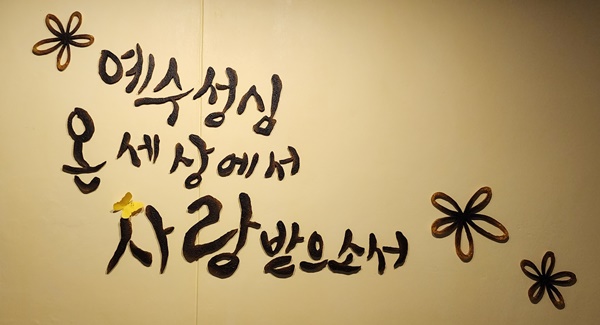 예수성심
온 세상에서
사랑받으소서